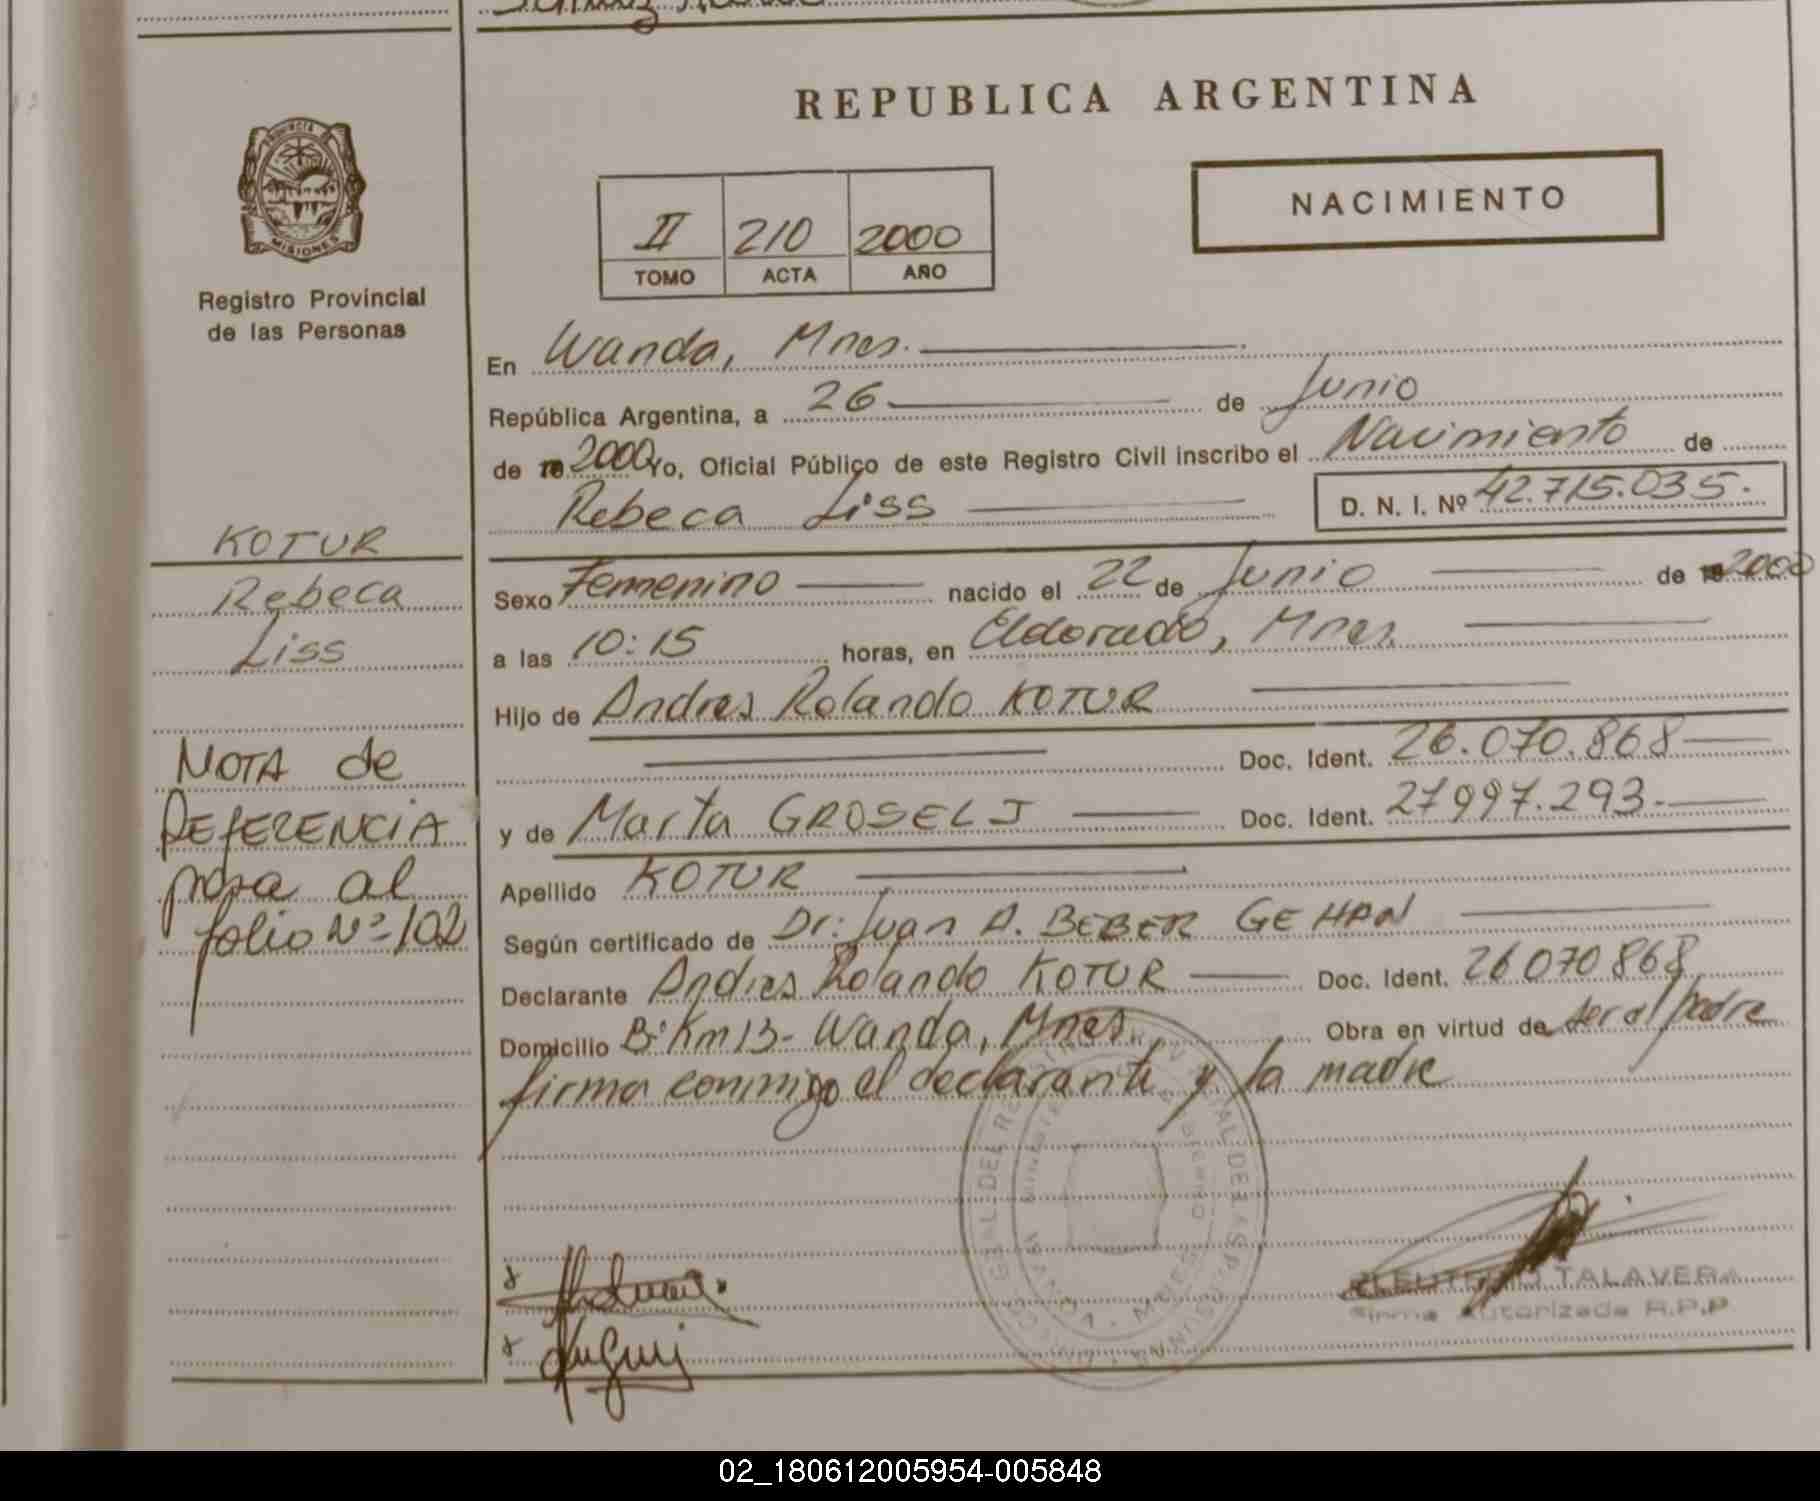 REPUBLICA ARGENTINA
PROVINCIA DE
MISIONES
Registro Provincial
de las Personas
II 210 2000
TOMO ACTA AÑO
NACIMIENTO
En Wanda, Mnes.
República Argentina, a 26 de Junio
de 2000 Yo, Oficial Público de este Registro Civil inscribo el Nacimiento de
Rebeca Liss D. N. I. Nº 42.715.035.
Sexo Femenino nacido el 22 de Junio de 2000
a las 10:15 horas, en Eldorado, Mnes.
Hijo de Andres Rolando KOTUR
Doc. Ident. 26.070.868
y de Marta GROSELJ Doc. Ident. 27997.293.
Apellido KOTUR
Según certificado de Dr: Juan A. BEBER GEHAN
Declarante Andres Rolando KOTUR Doc. Ident. 26070868
Domicilio B: Km 13- Wanda, Mnes. Obra en virtud de ser el padre
firma conmigo el declarante y la madre
KOTUR
Rebeca
Liss
NOTA de
REFERENCIA
pasa al
folio Nº 102
TALAVERA
Firma Autorizada R.P.P.
02_180612005954-005848